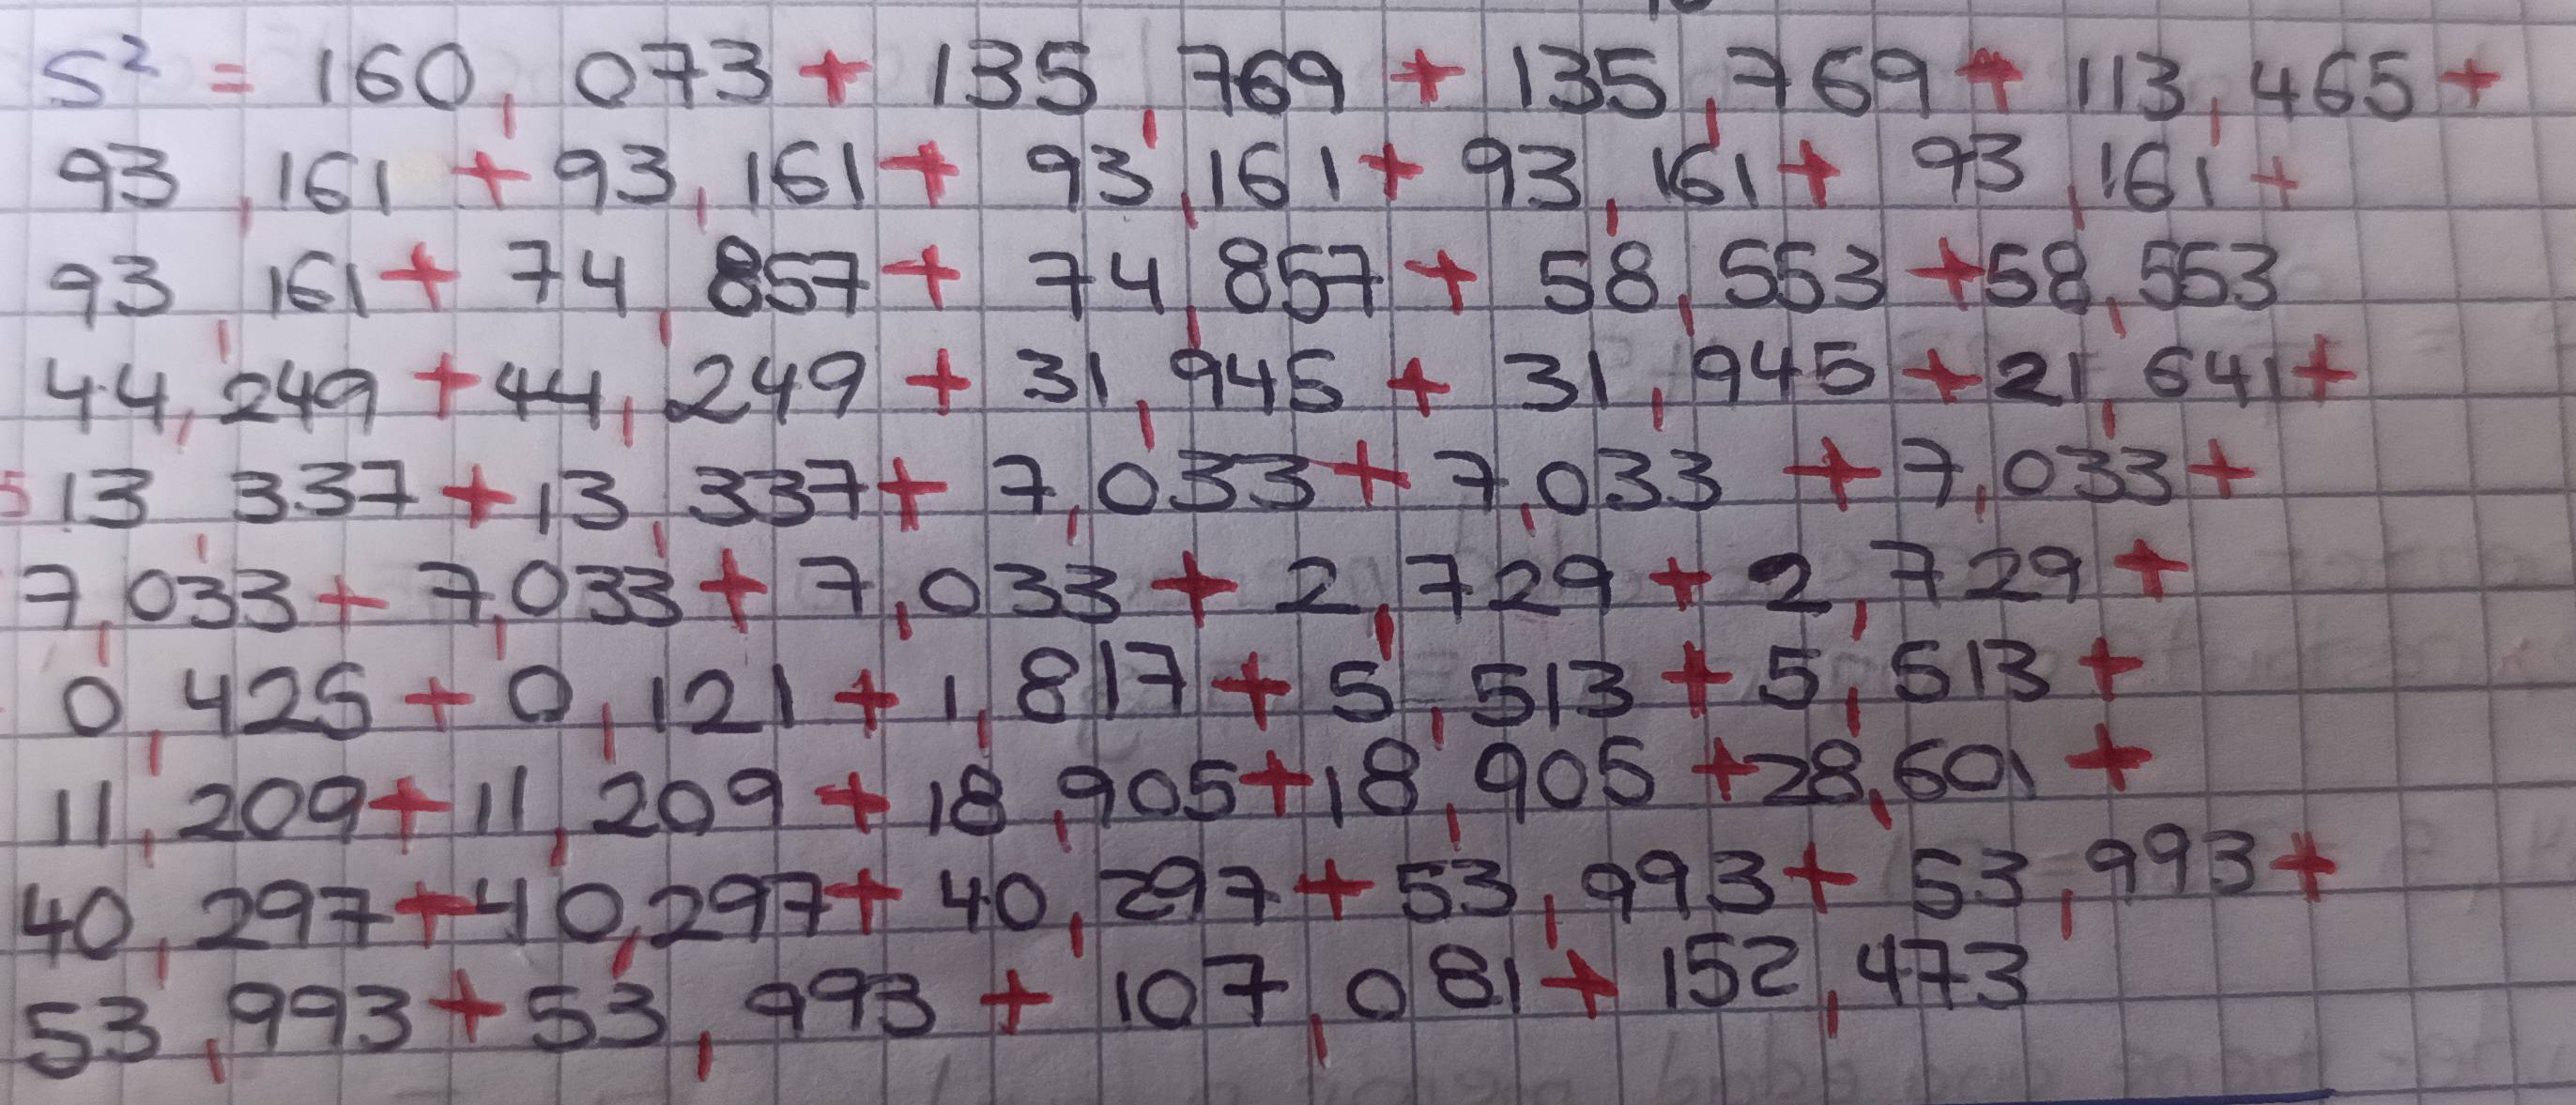 S² = 160,073 + 135,769 + 135,769 + 113,465 +
93,161 + 93,161 + 93,161 + 93,161 + 93,161 +
93,161 + 74,857 + 74,857 + 58,553 + 58,553
44,249 + 44,249 + 31,945 + 31,945 + 21,641 +
13,337 + 13,337 + 7,033 + 7,033 + 7,033 +
7,033 + 7,033 + 7,033 + 2,729 + 2,729 +
0,425 + 0,121 + 1,817 + 5,513 + 5,513 +
11,209 + 11,209 + 18,905 + 18,905 + 28,601 +
40,297 + 40,297 + 40,297 + 53,993 + 53,993 +
53,993 + 53,993 + 107,081 + 152,473